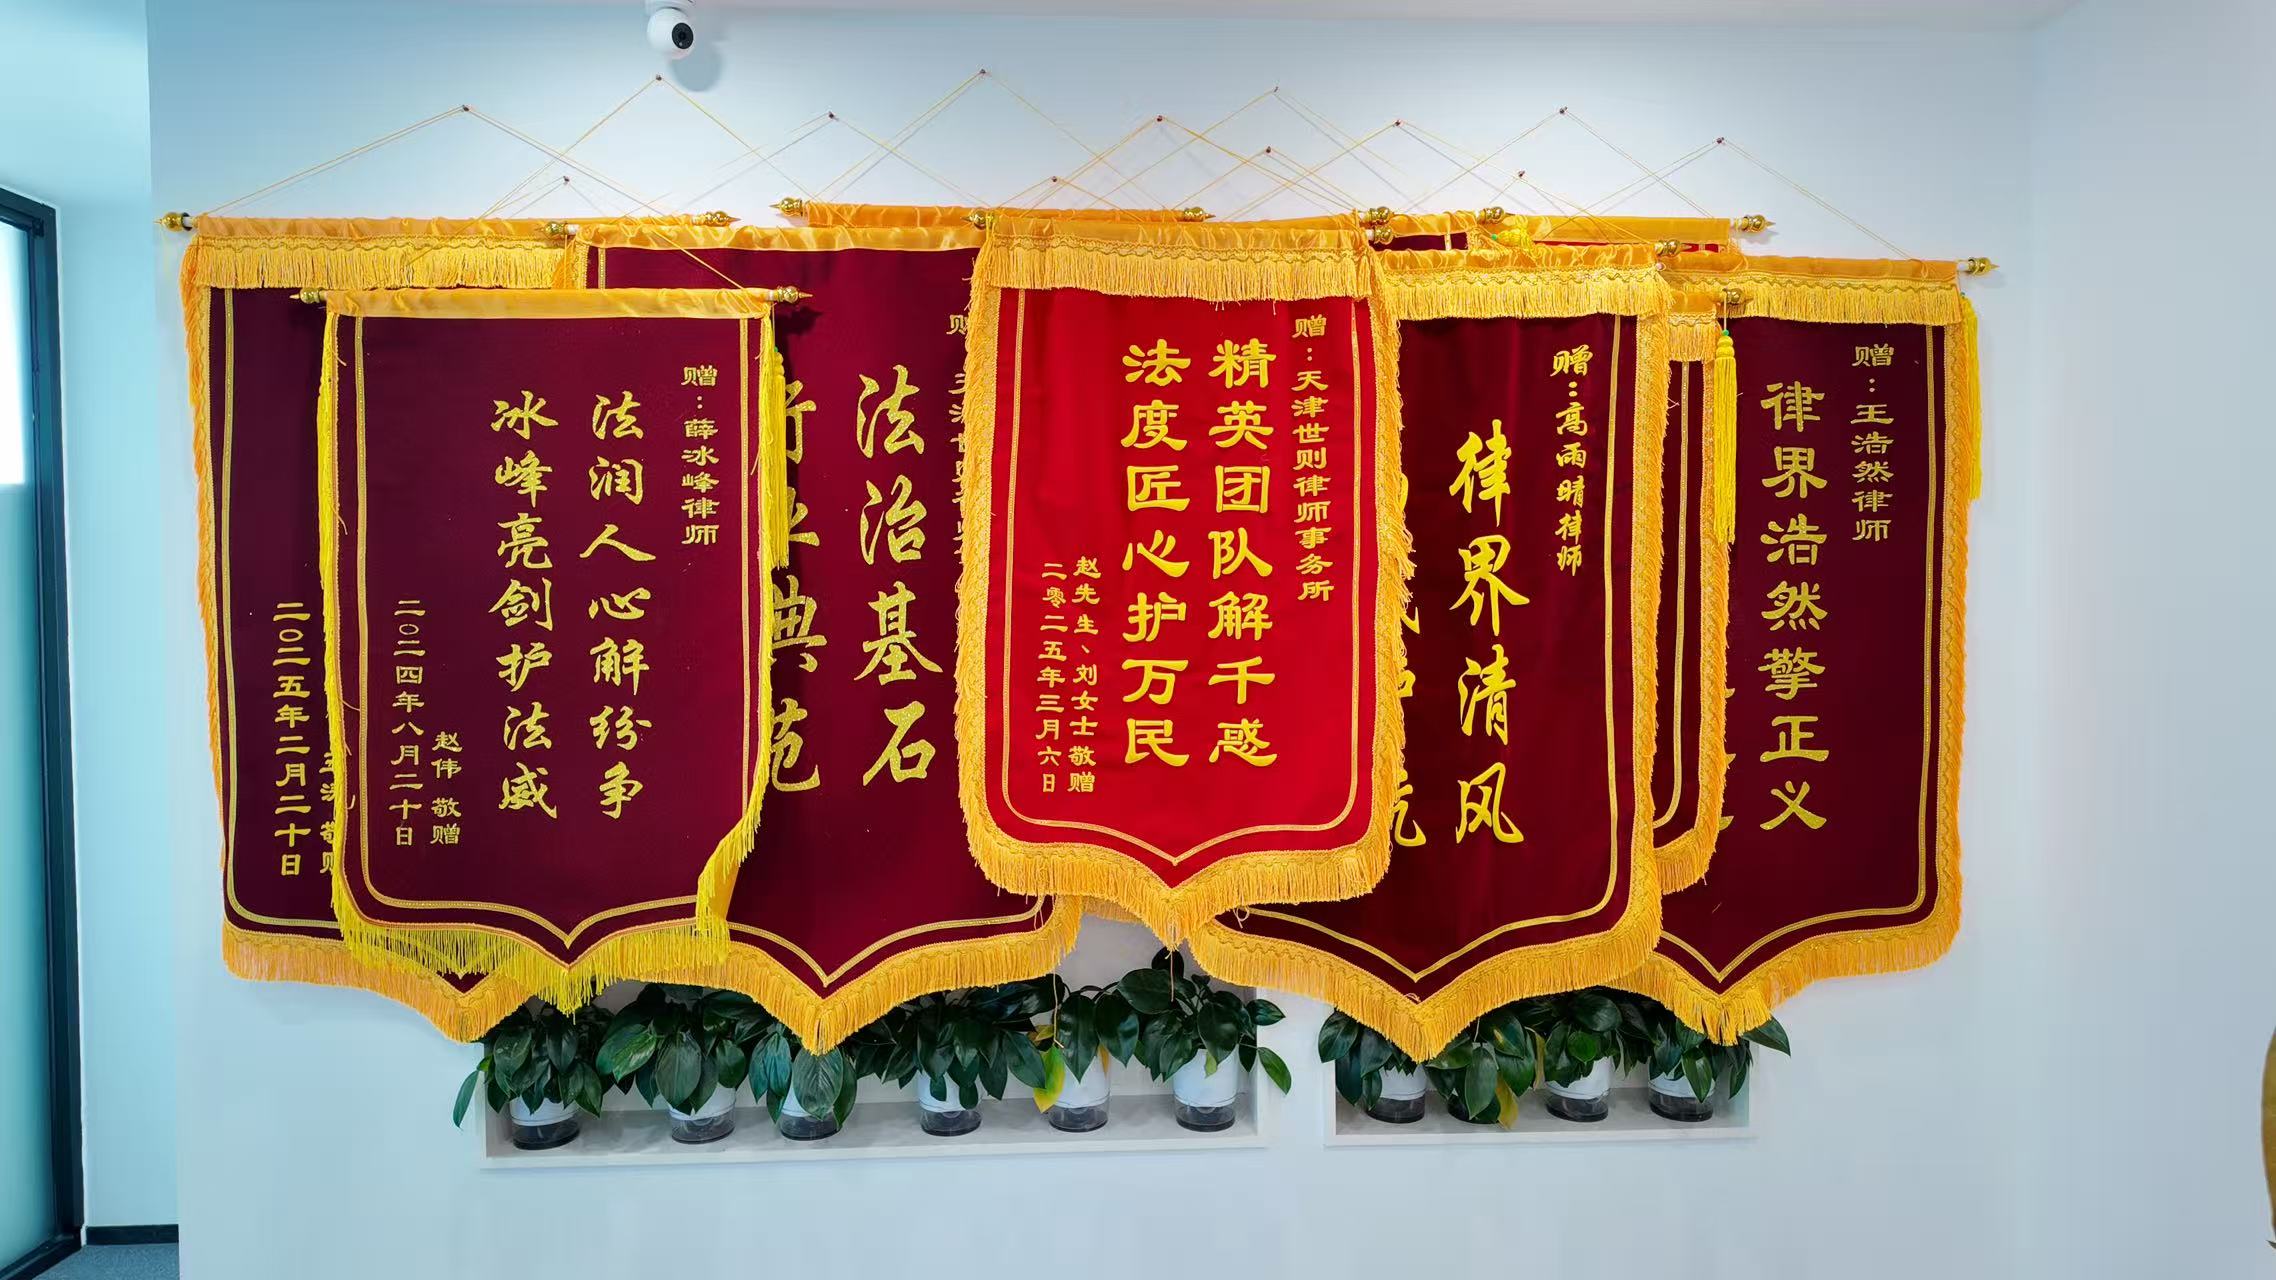 二〇二五年二月二十日
赠：薛冰峰律师
法润人心解纷争
冰峰亮剑护法威
赵伟 敬赠
二〇二四年八月二十日
法治基石
赠：天津世则律师事务所
精英团队解千惑
法度匠心护万民
赵先生、刘女士 敬赠
二零二五年三月六日
赠：高雨晴律师
律界清风
赠：王浩然律师
律界浩然擎正义